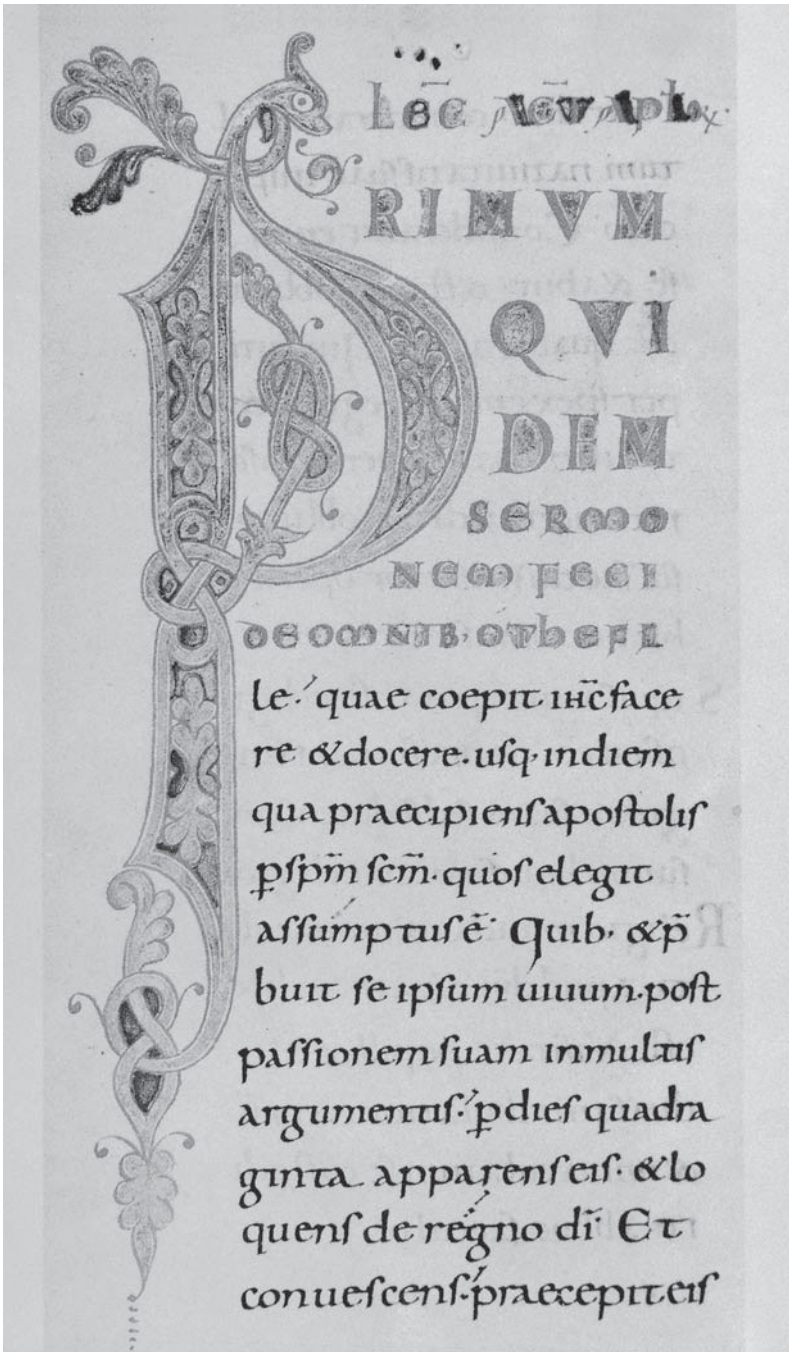 LEC̄ ACTUŪ APL
P
RIMVM
QVI
DEM
SERMO
NEM FECI
DE OMNIB· OTHEFI
le· quae coepit ihc̄ face
re & docere· usq· in diem
qua praecipiens apostolis
ꝑ sp̄m sc̄m· quos elegit
assumptus ē· Quib· & p̄
buit se ipsum uiuum· post
passionem suam in multis
argumentis· ꝑ dies quadra
ginta apparens eis· & lo
quens de regno dī· Et
conuescens· praecepit eis